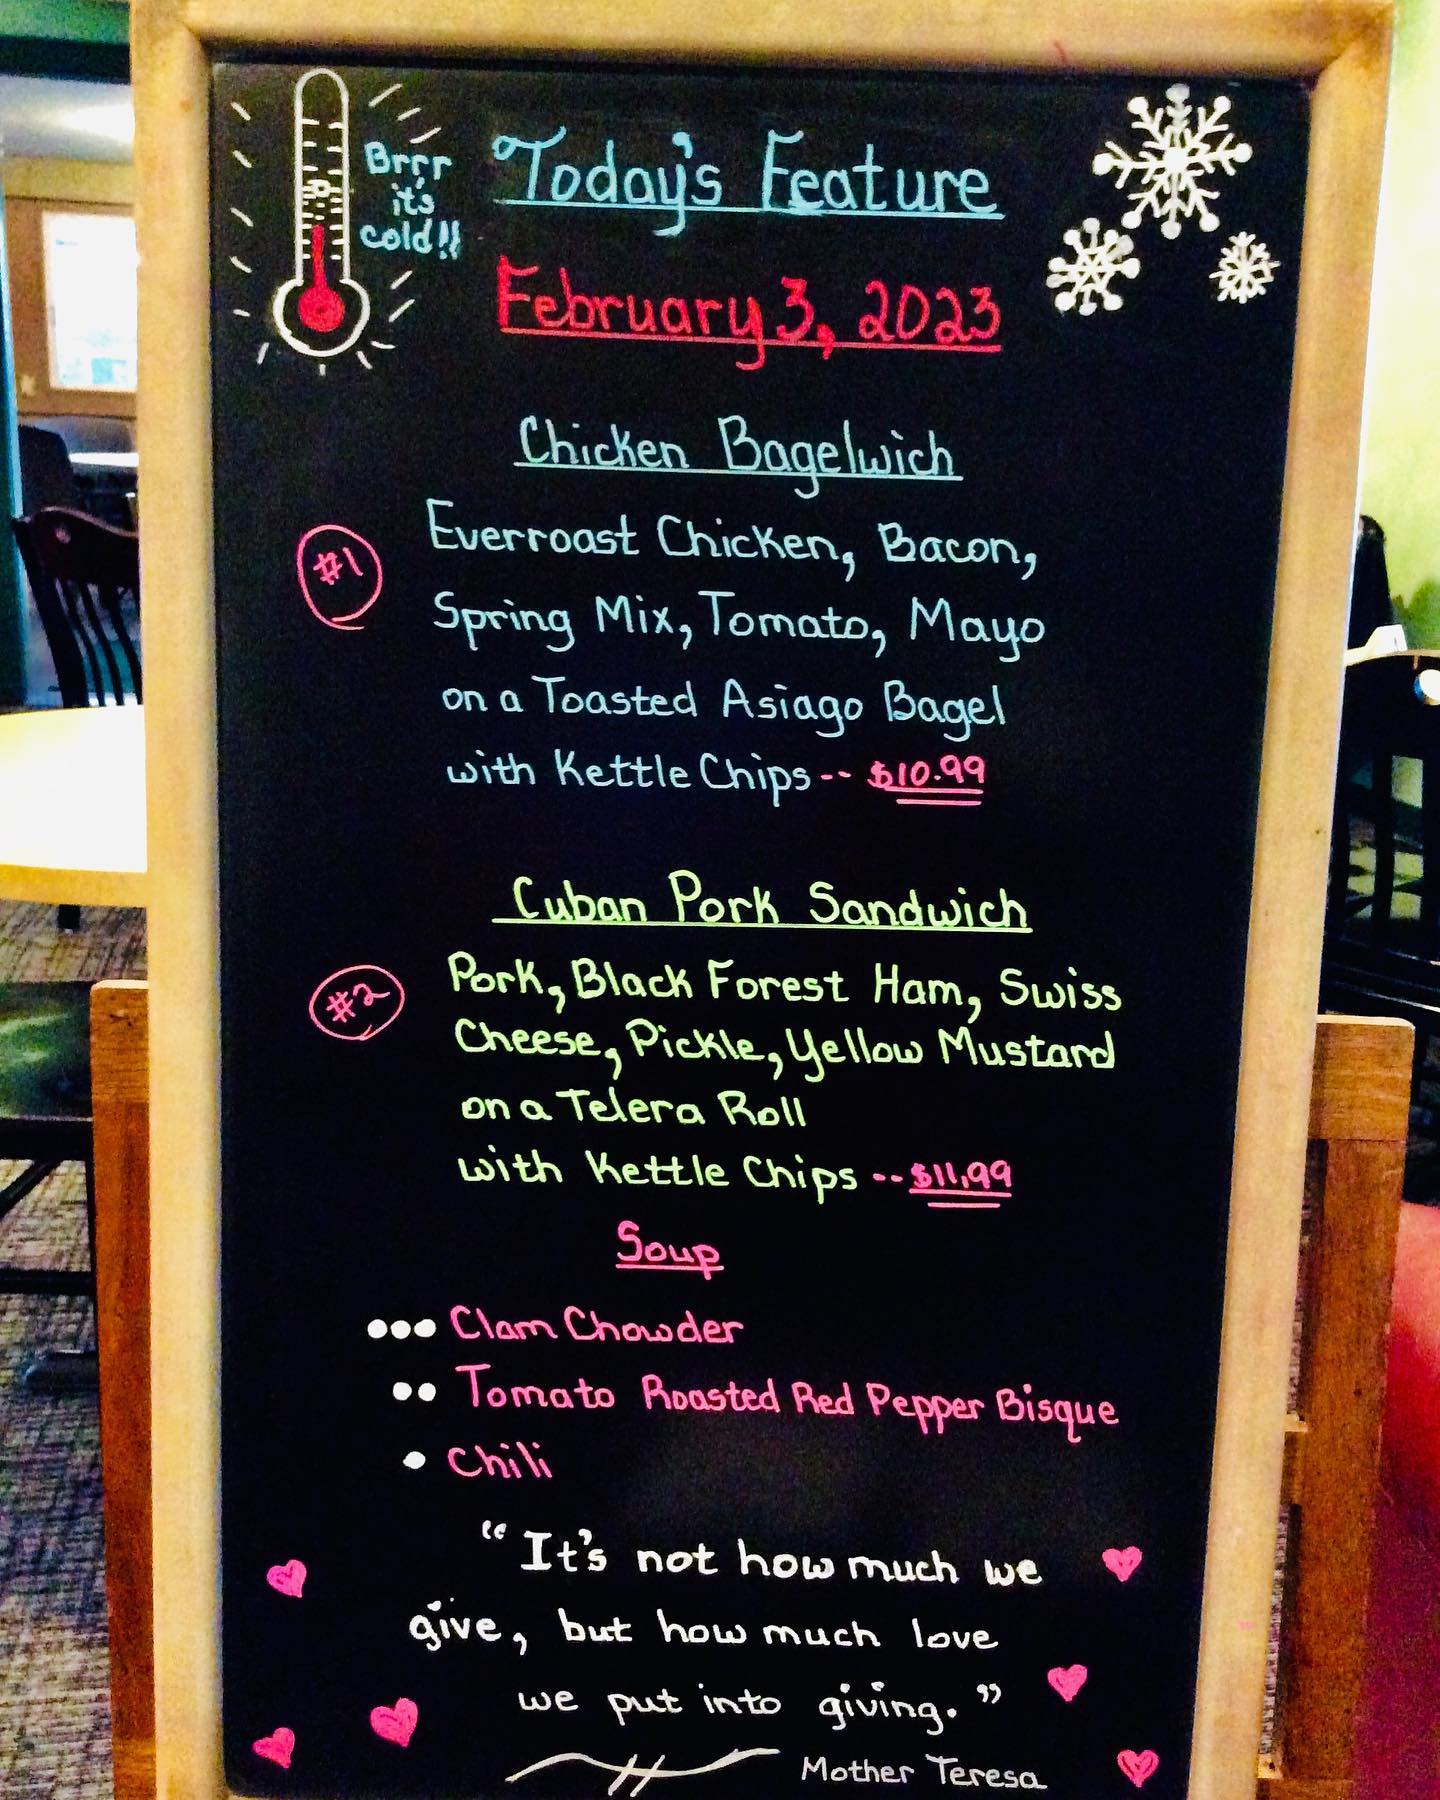 Brrr
it's
cold!!
Today's Feature
February 3, 2023
Chicken Bagelwich
#1
Everroast Chicken, Bacon,
Spring Mix, Tomato, Mayo
on a Toasted Asiago Bagel
with Kettle Chips -- $10.99
Cuban Pork Sandwich
#2
Pork, Black Forest Ham, Swiss
Cheese, Pickle, Yellow Mustard
on a Telera Roll
with Kettle Chips -- $11.99
Soup
••• Clam Chowder
•• Tomato Roasted Red Pepper Bisque
• Chili
"It's not how much we
give, but how much love
we put into giving."
Mother Teresa